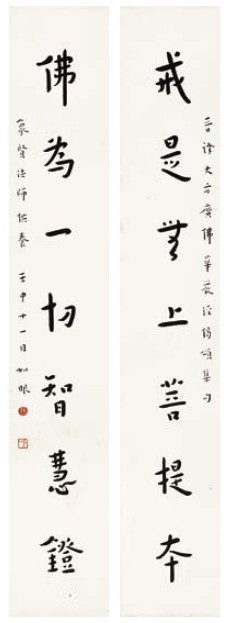 晉譯大方廣佛華嚴經偈頌集句
戒是無上菩提本
佛為一切智慧鐙
賢法師供養 壬申十一月 如眼